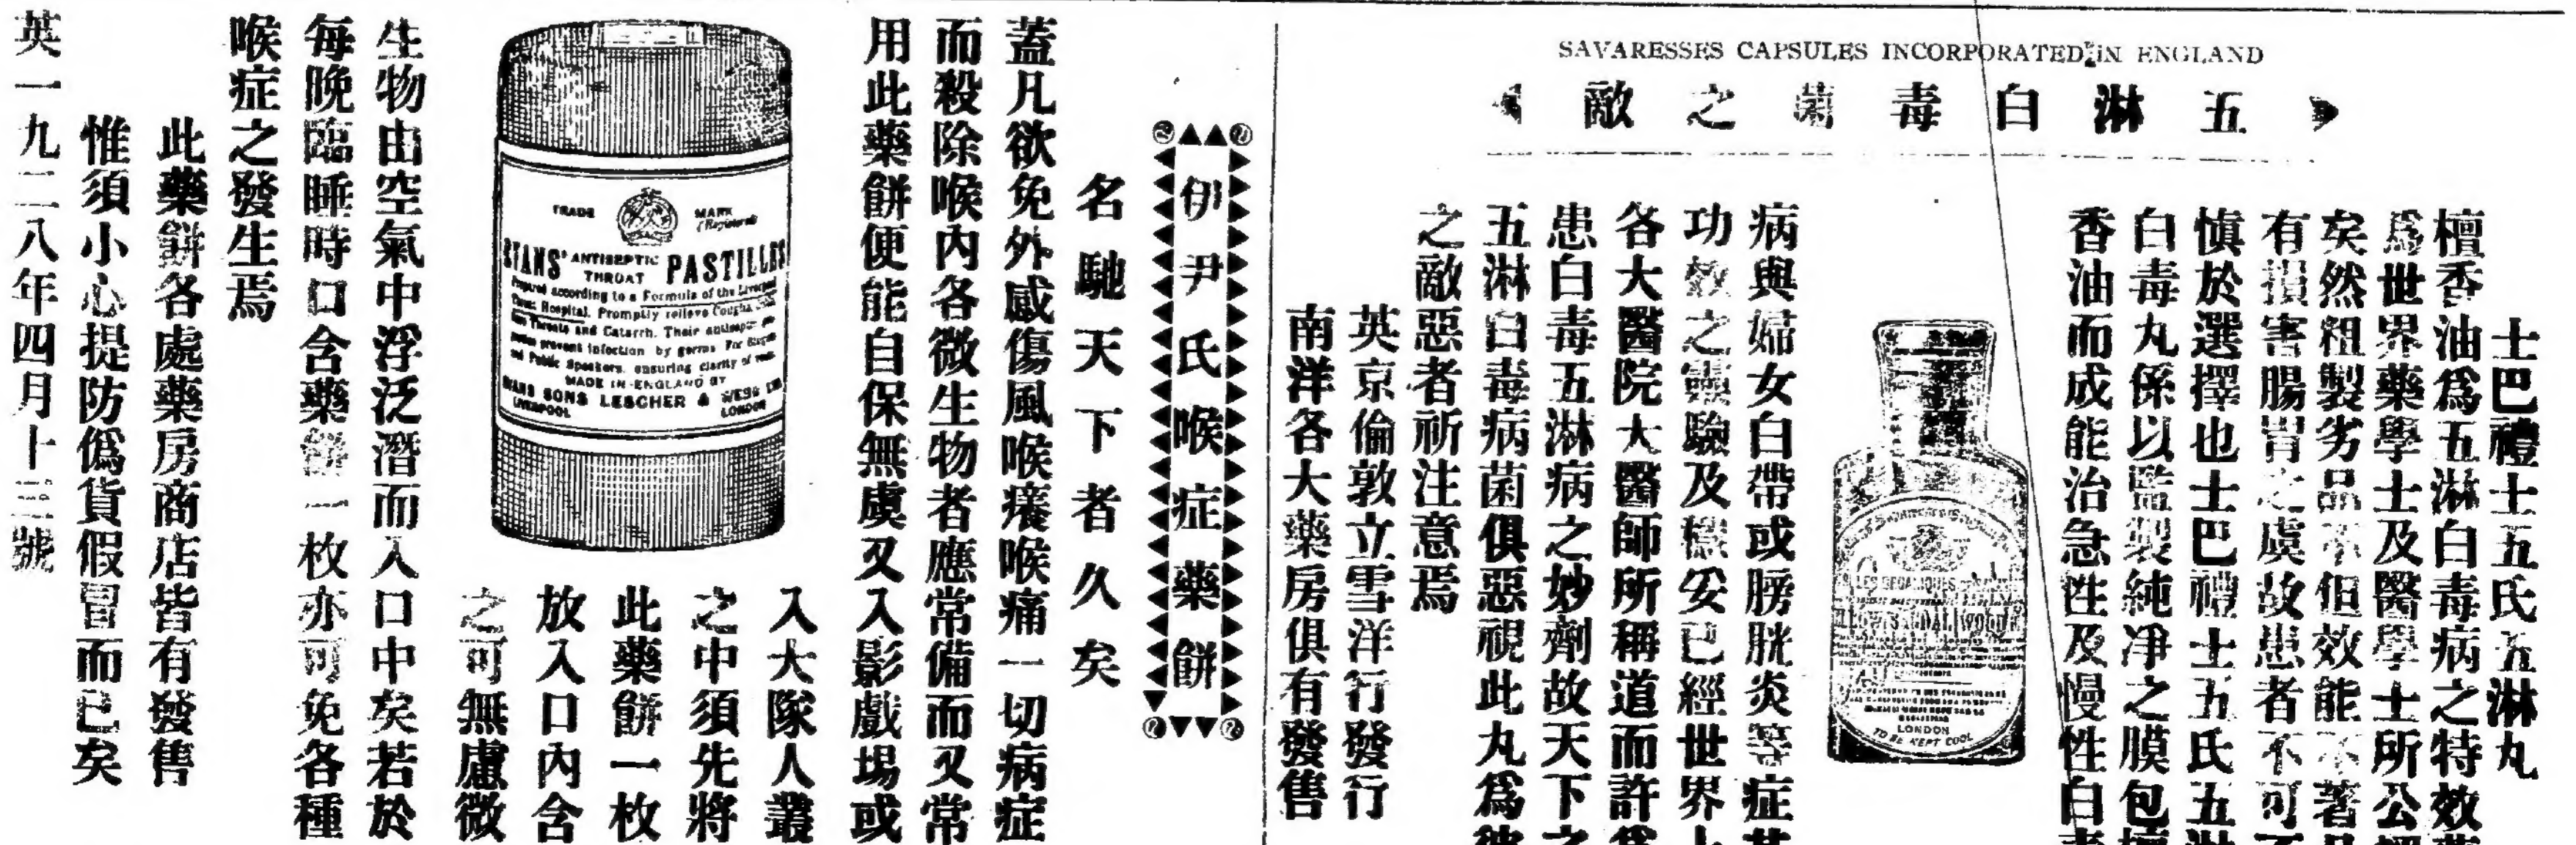 SAVARESSES CAPSULES INCORPORATED IN ENGLAND
五淋白毒菌之敵
士巴禮士五氏五淋丸
檀香油爲五淋白毒病之特效藥
爲世界藥學士及醫學士所公認
矣然粗製劣品不但效能不著且
有損害腸胃之虞故患者不可不
慎於選擇也士巴禮士五氏五淋
白毒丸係以監製純凈之膜包檀
香油而成能治急性及慢性白毒
LONDON
TO BE KEPT COOL
病與婦女白帶或膀胱炎等症其
功效之靈驗及穩妥已經世界上
各大醫院大醫師所稱道而許爲
患白毒五淋病之妙劑故天下之
五淋白毒病菌俱惡視此丸爲彼
之敵惡者祈注意焉
英京倫敦立雪洋行發行
南洋各大藥房俱有發售
伊尹氏喉症藥餅
名馳天下者久矣
蓋凡欲免外感傷風喉癢喉痛一切病症
而殺除喉內各微生物者應常備而又常
用此藥餅便能自保無虞又入影戲場或
入大隊人叢
之中須先將
此藥餅一枚
放入口內含
之可無慮微
TRADE MARK
(Registered)
EVANS' ANTISEPTIC THROAT PASTILLES
Prepared according to a Formula of the Liverpool
Throat Hospital. Promptly relieve Coughs,
Throats and Catarrh. Their antiseptic
prevent infection by germs For Singers
and Public Speakers, ensuring clarity of voice.
MADE IN ENGLAND BY
EVANS SONS LESCHER & WEBB LTD.
LIVERPOOL LONDON
生物由空氣中浮泛潛而入口中矣若於
每晚臨睡時口含藥餅一枚亦可免各種
喉症之發生焉
此藥餅各處藥房商店皆有發售
惟須小心提防僞貨假冒而已矣
英一九二八年四月十三號